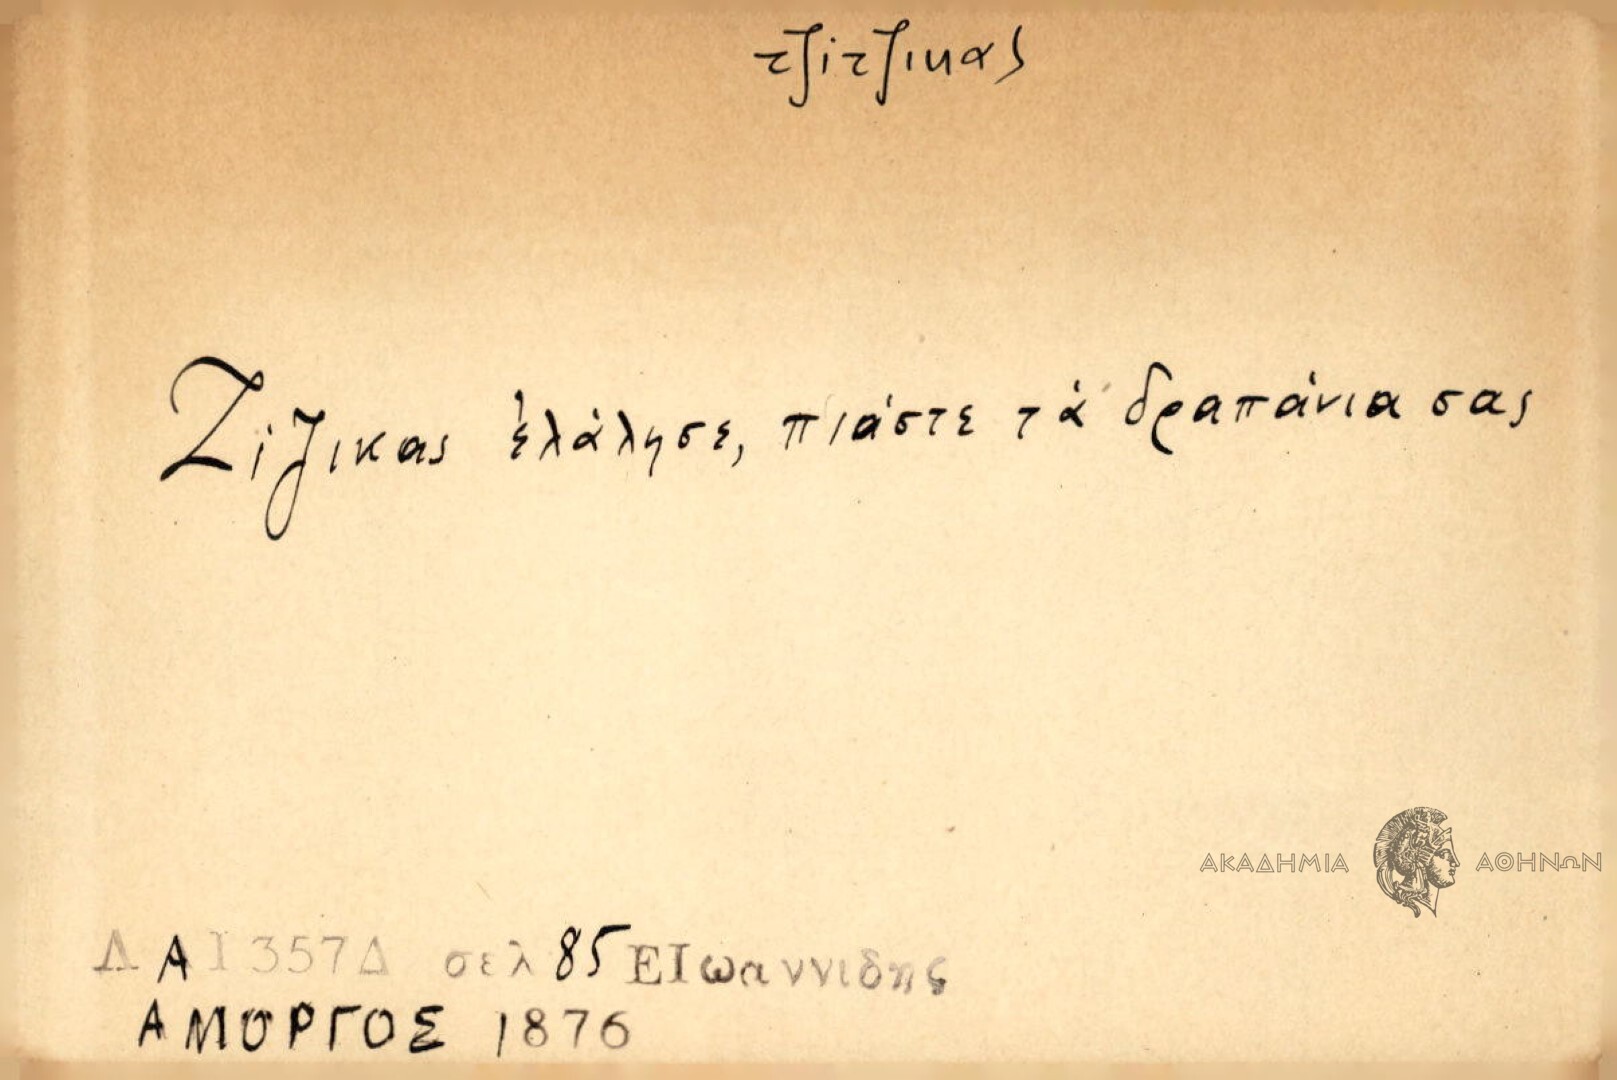 τζίτζικας
Ζίζικας ἐλάλησε, πιάστε τὰ δραπάνια σας
ΑΚΑΔΗΜΙΑ ΑΘΗΝΩΝ
Λ Α 1357Δ σελ 85 ΕΙωαννιδης
ΑΜΟΡΓΟΣ 1876